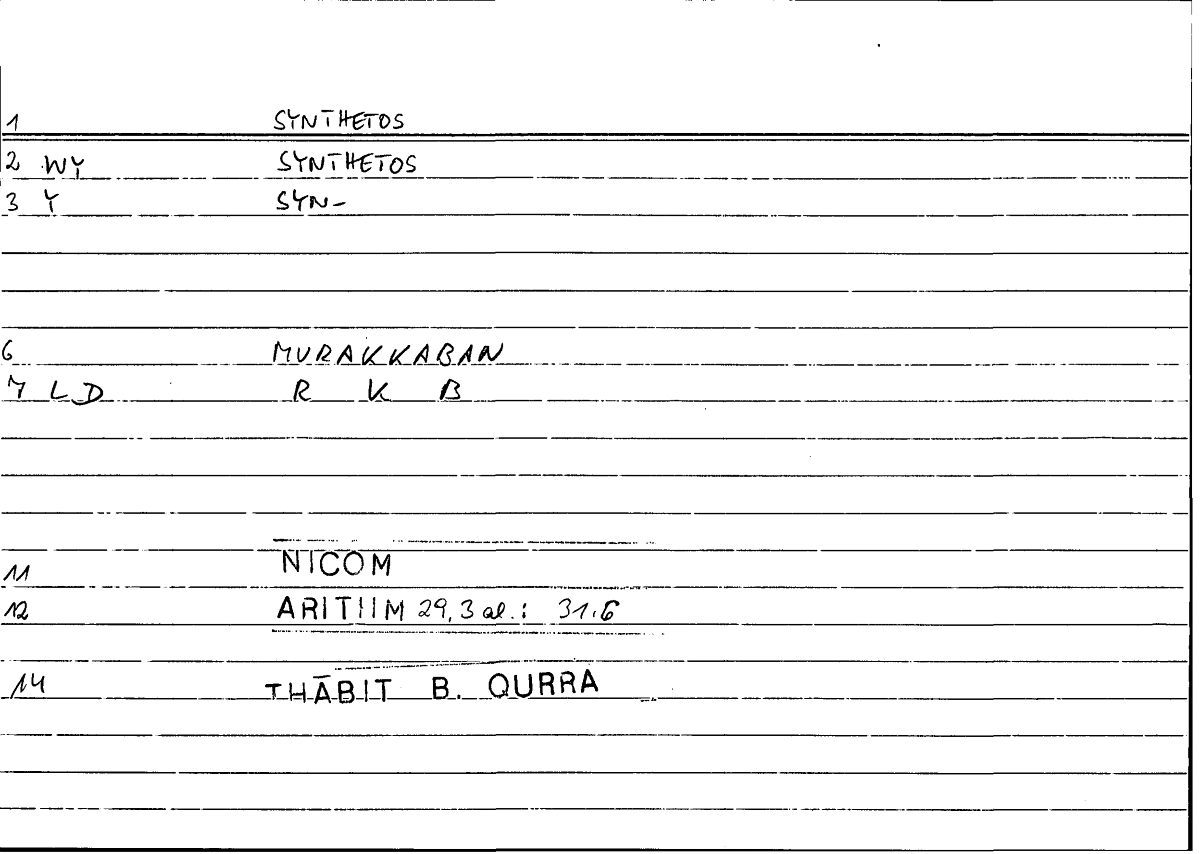 1 SYNTHETOS
2 WY SYNTHETOS
3 Y SYN-
6 MURAKKABAN
7 LD R K B
11 NICOM
12 ARITHM 29,3 al.: 31.6
14 THĀBIT B. QURRA